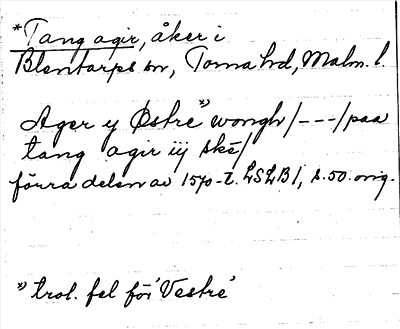 *Tang agir, åker i
Blentarps sn, Torna hd, Malm. l.
Ager y Østre *) wongh /---/ paa
tang agir iij skē/
förra delen av 1570-t. LSLB I, s. 50. orig.
*) trol. fel för 'Vestre'